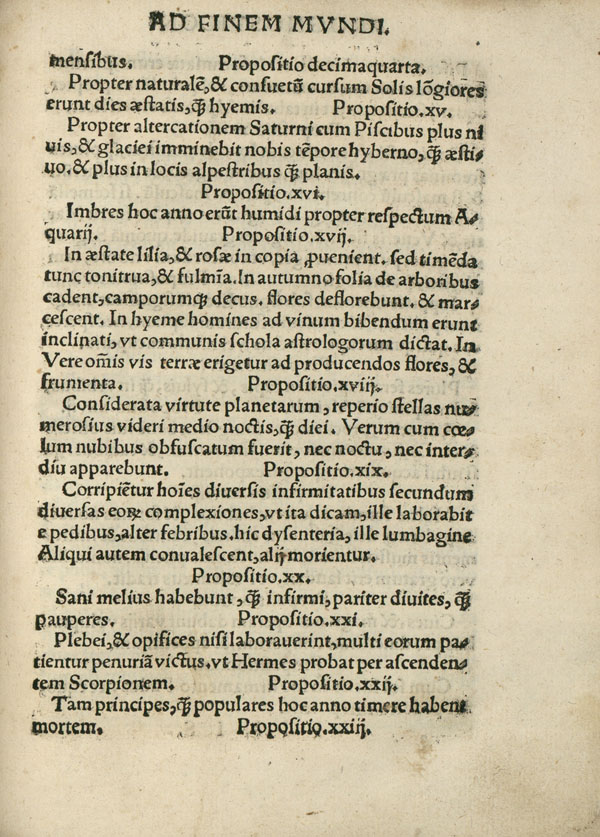 AD FINEM MVNDI.
mensibus. Propositio decimaquarta.
Propter naturalē,& consuetū cursum Solis lōgiores
erunt dies æstatis,ꝙ̄ hyemis. Propositio.xv.
Propter altercationem Saturni cum Piscibus plus ni
uis,& glaciei imminebit nobis tēpore hyberno,ꝙ̄ æsti⸗
uo.& plus in locis alpestribus ꝙ̄ planis.
Propositio.xvi.
Imbres hoc anno erāt humidi propter respectum A⸗
quarij. Propositio.xvij.
In æstate lilia,& rosæ in copia ꝓuenient. sed timēda
tunc tonitrua,& fulmīa.In autumno folia de arboribus
cadent,camporumq; decus. flores deflorebunt. & mar⸗
cescent. In hyeme homines ad vinum bibendum erunt
inclinati, vt communis schola astrologorum dictat. In
Vere om̄is vis terræ erigetur ad producendos flores, &
frumenta. Propositio.xviij.
Considerata virtute planetarum, reperio stellas nu⸗
merosius videri medio noctis,ꝙ̄ diei. Verum cum cœ⸗
lum nubibus obfuscatum fuerit, nec noctu, nec inter⸗
diu apparebunt. Propositio.xix.
Corripiētur hoīes diuersis infirmitatibus secundum
diuersas eoꝝ complexiones, vt ita dicam, ille laborabit
e pedibus,alter febribus. hic dysenteria, ille lumbagine
Aliqui autem conualescent,alij morientur.
Propositio.xx.
Sani melius habebunt, ꝙ̄ infirmi, pariter diuites, ꝙ̄
pauperes. Propositio.xxi.
Plebei,& opifices nisi laborauerint,multi eorum pa⸗
tientur penuriā victus.vt Hermes probat per ascenden⸗
tem Scorpionem. Propositio.xxij.
Tam principes,ꝙ̄ populares hoc anno timere habent
mortem. Propositio.xxiij.